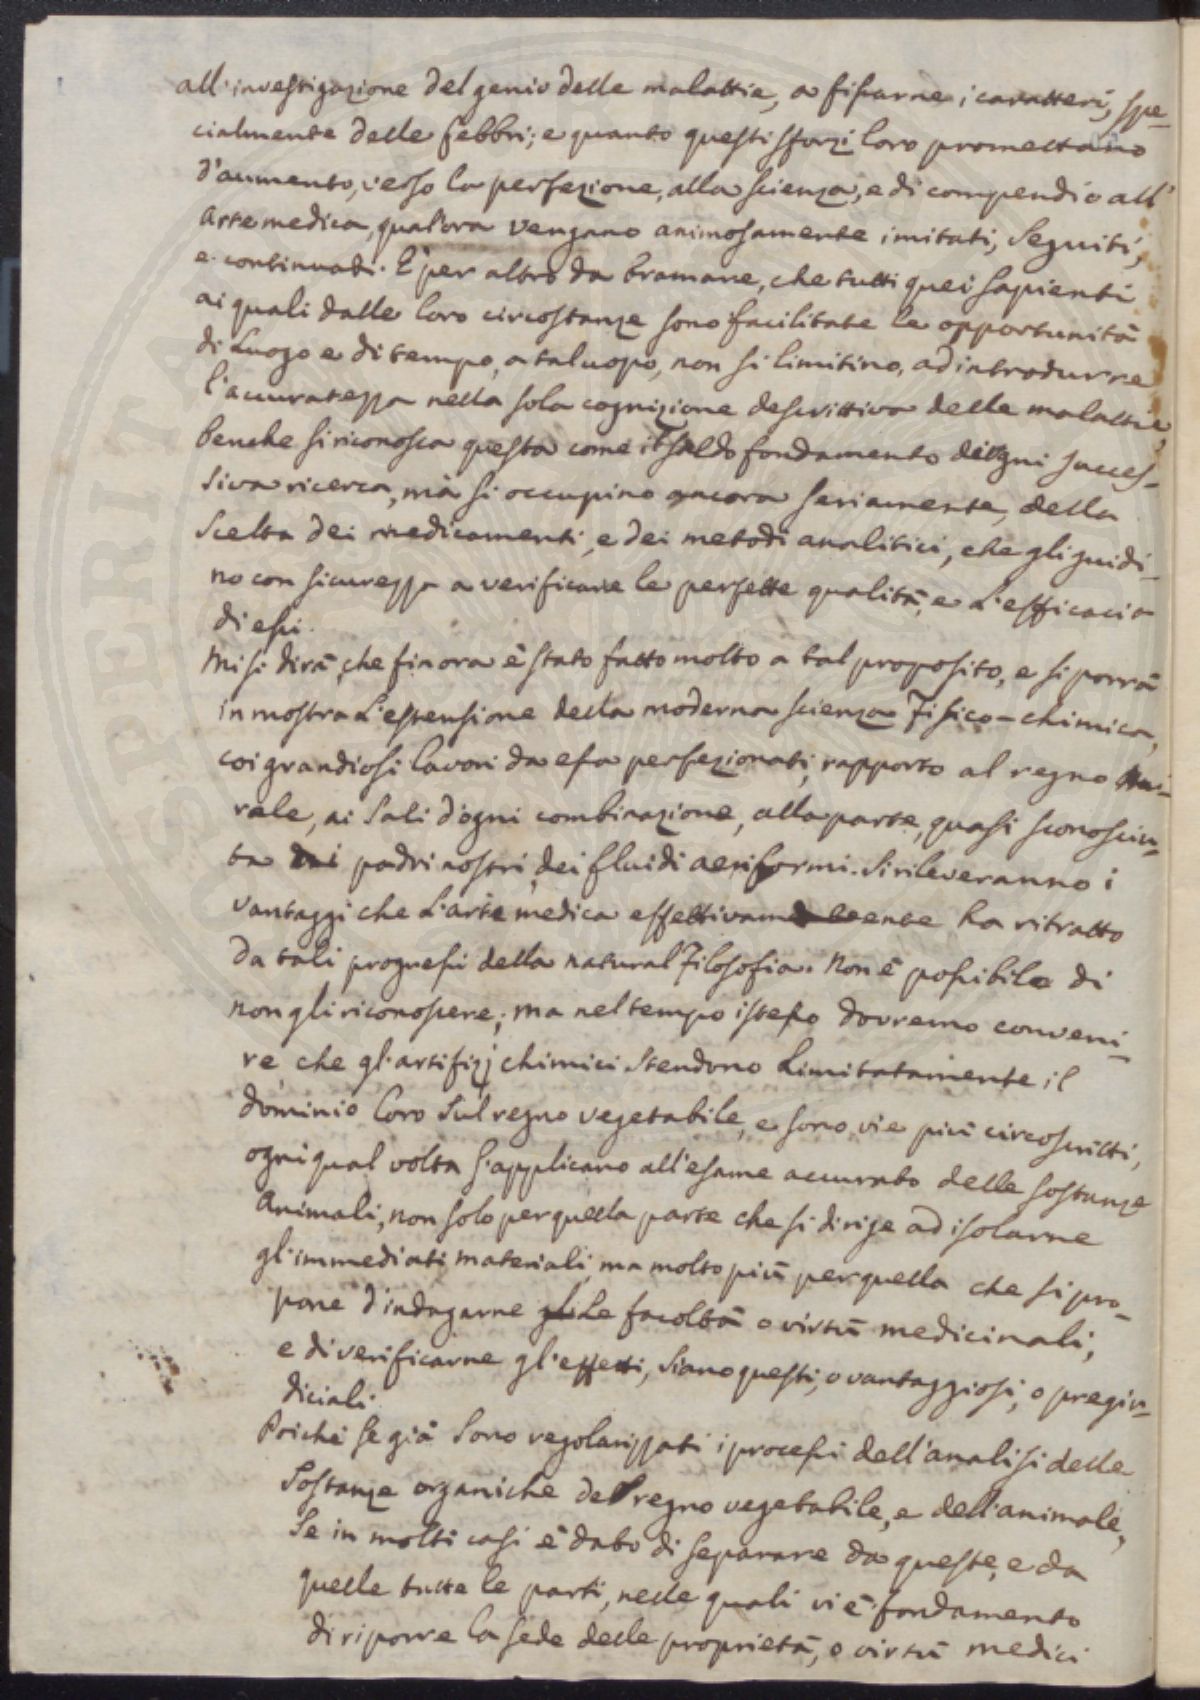 all'investigazione del genio delle malattie, a fissarne i caratteri, spe-
cialmente delle febbri; e quanto questi sforzi loro promettano
d'aumento, verso la perfezione, alla scienza, e di compendio all'
arte medica, qualora vengano animosamente imitati, seguiti,
e continuati. È per altro da bramare, che tutti quei sapienti
ai quali dalle loro circostanze sono facilitate le opportunità
di Luogo e di tempo, a tal uopo, non si limitino, ad introdurre
l'accuratezza nella sola cognizione descrittiva delle malattie,
benche si riconosca questa come il saldo fondamento di ogni succes-
siva ricerca, mà si occupino ancora seriamente, della
scelta dei medicamenti, e dei metodi analitici, che gli guidi-
no con sicurezza a verificare le perfette qualità, e L'efficacia
di essi.
Mi si dirà, che finora è stato fatto molto a tal proposito, e si porrà
in mostra L'estensione della moderna scienza Fisico-chimica,
coi grandiosi lavori da essa perfezionati, rapporto al regno Mi-
rale, ai Sali d'ogni combinazione, alla parte, quasi sconosciu-
ta dai padri nostri, dei fluidi aeriformi. Si rileveranno i
vantaggi che L'arte medica effettivamente ha ritratto
da tali progressi della natural Filosofia. Non è possibile di
non gli riconoscere; ma nel tempo istesso dovremo conveni-
re che gl'artifizj chimici stendono Limitatamente il
dominio loro sul regno vegetabile, e sono vie più circoscritti,
ogni qual volta s'applicano all'esame accurato delle sostanze
animali, non solo per quella parte che si dirige ad isolarne
gl'immediati materiali, ma molto più per quella che si pro-
pone d'indagarne Le facoltà o virtù medicinali,
e di verificarne gl'effetti, siano questi, o vantaggiosi, o pregiu-
diciali.
Poiché se già sono regolarizzati i processi dell'analisi delle
sostanze organiche del regno vegetabile, e dell'animale,
se in molti casi è dato di separare da queste, e da
quelle tutte le parti, nelle quali vi è fondamento
di riporre la sede delle proprietà, o virtù medici